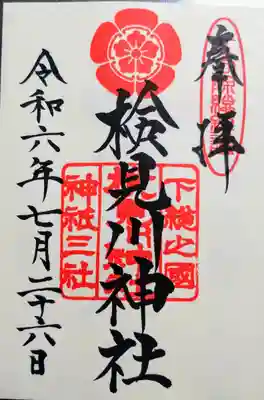 奉拝
下総之國
検見川神社
神祇三社
令和六年七月二十六日